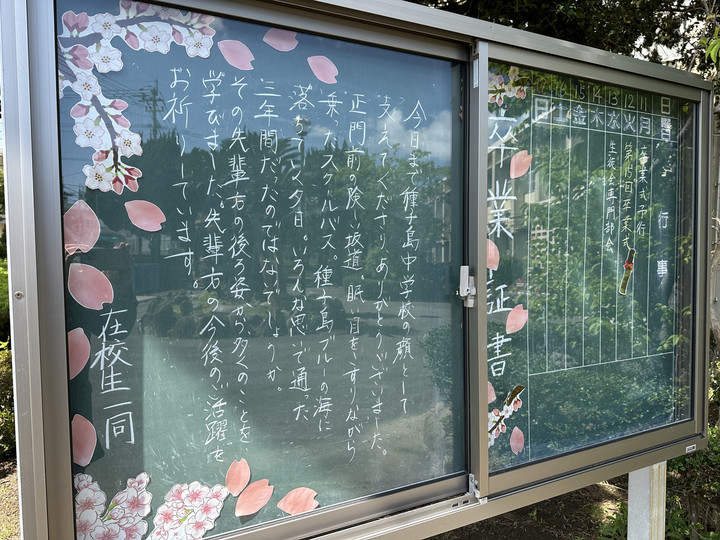 日曜行事
11月 卒業式予行
12火 第15回卒業式
13水 生徒会専門部会
14木
15金
16土
日
卒業証書
今日まで種子島中学校の顔として
支えてくださり、ありがとうございました。
正門前の険しい坂道。眠い目をこすりながら
乗ったスクールバス。種子島ブルーの海に
落ちていく夕日。いろんな思いで通った
三年間だったのではないでしょうか。
その先輩方の後ろ姿から多くのことを
学びました。先輩方の今後のご活躍を
お祈りしています。
在校生一同